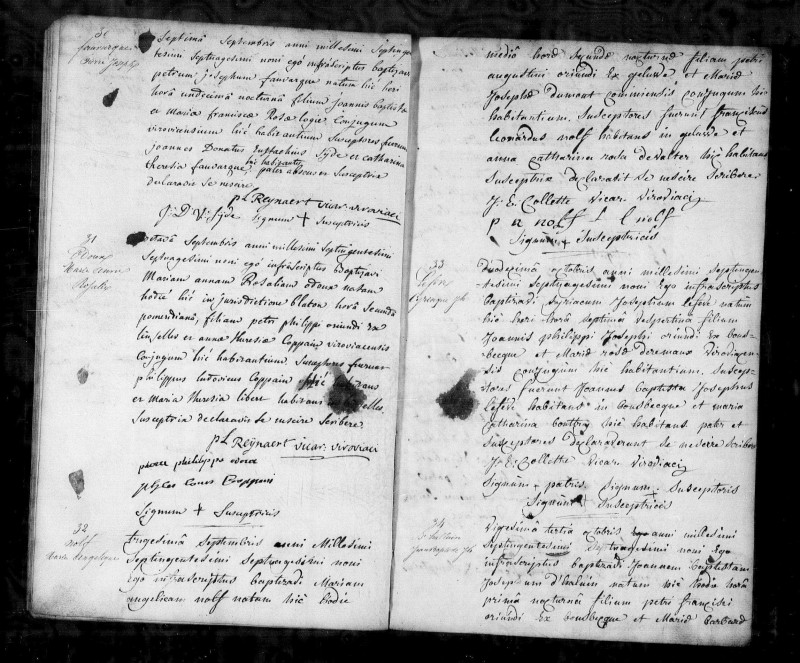 Septimâ Septembris anni millesimi Septingen
tesimi Septuagesimi noni ego infrascriptus baptizavi
petrum josephum fauvarque natum hic heri
horâ undecimâ nocturnâ filium Joannis baptistæ
et Mariæ franciscæ Rosæ logie Conjugum
viroviensium hic habitantium Susceptores fuerunt
Joannes Donatus Eustachius Syde et catharina
theresia fauvarque hic habitantes pater absens et Susceptrix
declaravit Se nescire
pl Reynaert vicar: viroviaci
J: D: V: Syde Signum + Susceptricis
31
odoux
Maria Anna
Rosalia
octavâ Septembris anni millesimi Septingentesimi
Septuagesimi noni ego infrascriptus baptizavi
Mariam annam Rosaliam odoux natam
hodie hic in jurisdictione blaton horâ Secundâ
pomeridianâ, filiam petri philippi oriundi ex
linselles et annæ theresiæ Coppain viroviacensis
Conjugum hic habitantium. Susceptores fuerunt
philippus ludovicus Coppain hic habitans
et Maria theresia libert habitans in linselles,
Susceptrix declaravit se nescire Scribere.
pl Reynaert vicar: viroviaci
pierre philippe odoux
Signum + Susceptricis
32
nolf
Maria Angelica
Trigesimâ Septembris anni Millesimi
Septingentesimi Septuagesimi noni
Ego infrascriptus baptizavi Mariam
angelicam nolf natam hic hodie
mediâ horâ Secundâ nocturnâ filiam petri
augustini oriundi Ex geluwe et Mariæ
Josephæ dumont cominiensis conjugum hic
habitantium. Susceptores fuerunt franciscus
leonardus nolf habitans in geluwe et
anna catharina rosa devalter hic habitans
Susceptrix declaravit se nescire Scribere
J. E: Collette Vicar: Virodiaci
p a nolf f l nolf
Signum + Susceptricis
33
lefevr
Duodecimâ octobris anni millesimi Septingen
tesimi Septuagesimi noni Ego infrascriptus
baptizavi Syriacum Josephum lefevr natum
hic heri horâ Septimâ Vespertinâ filium
Joannis philippi Josephi oriundi Ex bous-
becque et Mariæ rosæ deremaux Virodiacen
sis conjugum hic habitantium. Suscep-
tores fuerunt Joannes baptista Josephus
lefevr habitans in bousbecque et maria
catharina hic habitans pater et
Susceptores Declaraverunt se nescire Scribere
J: E: Collette Vicar: Virodiaci
Signum + patris Signum + Susceptoris
Signum + Susceptricis
34
Vigesimâ tertiâ octobris anni millesimi
Septingentesimi Septuagesimi noni Ego
infrascriptus baptizavi Joannem baptistam
Josephum d'haluin natum hic hodie horâ
primâ nocturnâ filium petri francisci
oriundi Ex bousbecque et Mariæ barbaræ